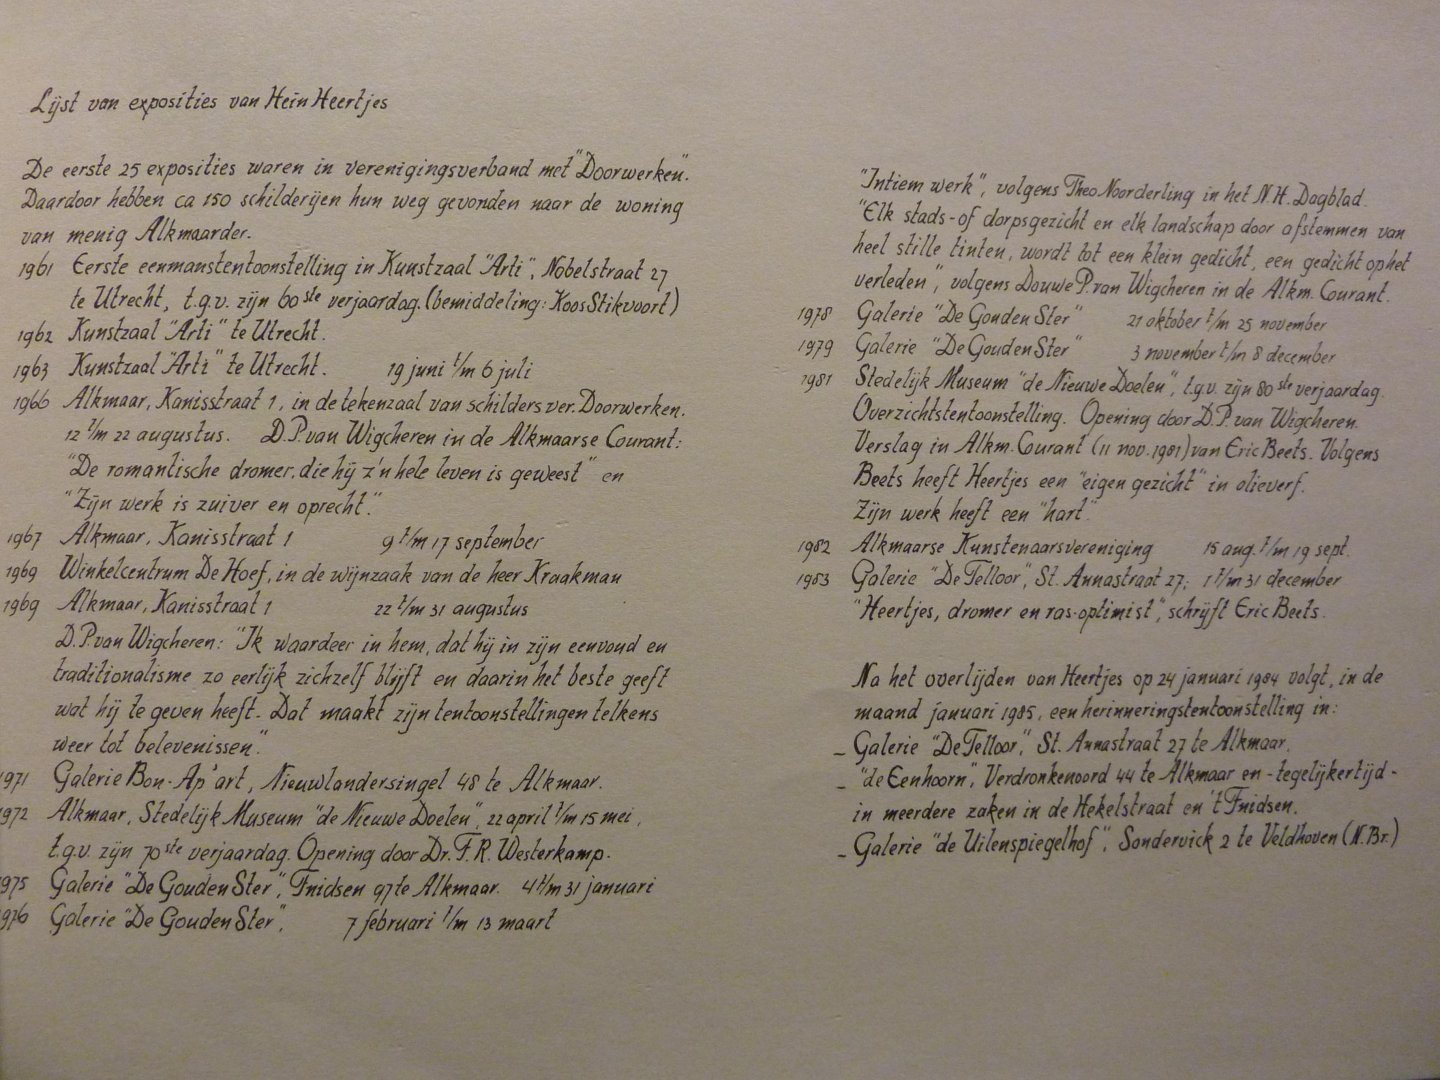 Lijst van exposities van Hein Heertjes
De eerste 25 exposities waren in verenigingsverband met "Doorwerken".
Daardoor hebben ca 150 schilderijen hun weg gevonden naar de woning
van menig Alkmaarder.
1961 Eerste eenmanstentoonstelling in Kunstzaal "Arti", Nobelstraat 27
te Utrecht, t.g.v. zijn 60ste verjaardag. (bemiddeling: Koos Stikvoort)
1962 Kunstzaal "Arti" te Utrecht.
1963 Kunstzaal "Arti" te Utrecht. 19 juni t/m 6 juli
1966 Alkmaar, Kanisstraat 1, in de tekenzaal van schilders ver. Doorwerken.
12 t/m 22 augustus. D.P. van Wigcheren in de Alkmaarse Courant:
"De romantische dromer, die hij z'n hele leven is geweest" en
"Zijn werk is zuiver en oprecht."
1967 Alkmaar, Kanisstraat 1 9 t/m 17 september
1969 Winkelcentrum De Hoef, in de wijnzaak van de heer Kraakman
1969 Alkmaar, Kanisstraat 1 22 t/m 31 augustus
D.P. van Wigcheren: "Ik waardeer in hem, dat hij in zijn eenvoud en
traditionalisme zo eerlijk zichzelf blijft en daarin het beste geeft
wat hij te geven heeft. Dat maakt zijn tentoonstellingen telkens
weer tot belevenissen."
1971 Galerie Bon-Ap'art, Nieuwlandersingel 48 te Alkmaar.
1972 Alkmaar, Stedelijk Museum "de Nieuwe Doelen", 22 april t/m 15 mei,
t.g.v. zijn 70ste verjaardag. Opening door Dr. F.R. Westerkamp.
1975 Galerie "De Gouden Ster", Fnidsen 97 te Alkmaar. 4 t/m 31 januari
1976 Galerie "De Gouden Ster", 7 februari t/m 13 maart
"Intiem werk", volgens Theo Noorderling in het N.H. Dagblad.
"Elk stads- of dorpsgezicht en elk landschap door afstemmen van
heel stille tinten, wordt tot een klein gedicht, een gedicht op het
verleden", volgens Douwe P. van Wigcheren in de Alkm. Courant.
1978 Galerie "De Gouden Ster" 21 oktober t/m 25 november
1979 Galerie "De Gouden Ster" 3 november t/m 8 december
1981 Stedelijk Museum "de Nieuwe Doelen", t.g.v. zijn 80ste verjaardag.
Overzichtstentoonstelling. Opening door D.P. van Wigcheren.
Verslag in Alkm. Courant (11 nov. 1981) van Eric Beets. Volgens
Beets heeft Heertjes een "eigen gezicht" in olieverf.
Zijn werk heeft een "hart".
1982 Alkmaarse Kunstenaarsvereniging 15 aug. t/m 19 sept.
1983 Galerie "De Telloor", St. Annastraat 27; 1 t/m 31 december
"Heertjes, dromer en ras-optimist", schrijft Eric Beets.
Na het overlijden van Heertjes op 24 januari 1984 volgt, in de
maand januari 1985, een herinneringstentoonstelling in:
- Galerie "De Telloor", St. Annastraat 27 te Alkmaar.
- "de Eenhoorn", Verdronkenoord 44 te Alkmaar en - tegelijkertijd -
in meerdere zaken in de Hekelstraat en 't Fnidsen.
- Galerie "de Uilenspiegelhof", Sondervick 2 te Veldhoven (N.Br.)